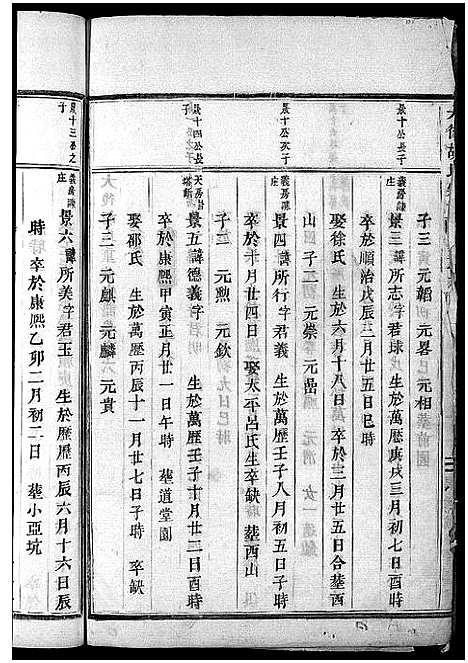 子三 元韜 元畧 元相
景十公長子
義房陳庄
景三諱所志字君球 生於萬歷庚戌三月初七日酉時
卒於順治戊辰二月廿五日巳時
娶徐氏 生於六月十八日 卒於三月廿五日合塟西
山 子二 元崇 元嵒
景十公次子
義房陳庄
景四諱所行字君義 生於萬歷壬子八月初五日子時
卒於十月廿四日 娶太平呂氏生卒缺 塟西山
子二 元勲 元欽
景十四公長子
天房
景五諱德義字君明 生於萬歷壬子十月廿三日酉時
卒於康熙甲寅正月廿一日午時 塟道堂園
娶邵氏 生於萬歷丙辰十一月廿七日子時 卒缺
子三 元麒 元麟 元貴
景十三公之子
義房陳庄
景六諱所美字君玉 生於歷歷丙辰六月十六日辰
時 卒於康熙乙卯二月初二日 塟小亞坑